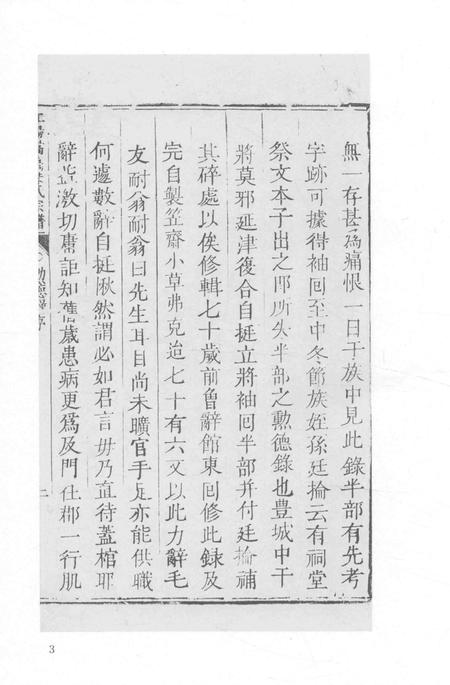 無一存甚爲痛恨一日于族中見此錄半部有先考
字跡可據得袖囘至中冬節族姪孫廷掄云有祠堂
祭文本子出之卽所失半部之勲德錄也豊城中干
將莫邪延津復合自挺立將袖囘半部并付廷掄補
其碎處以俟修輯七十歲前曾辭館東囘修此録及
完自製笠齋小草弗克迨七十有六又以此力辭毛
友耐翁耐翁曰先生耳目尚未曠官手足亦能供職
何遽數辭自挺愀然謂必如君言毋乃直待蓋棺耶
辭益激切庸詎知舊歲患病更爲及門仕郡一行肌
勲德錄序
二
3